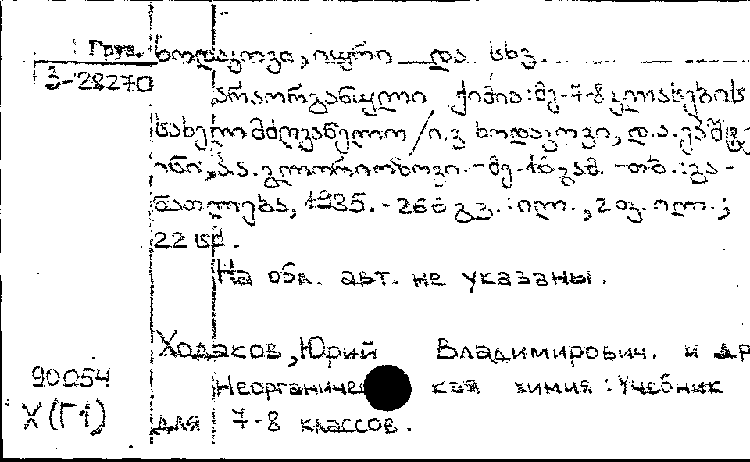 Груз. ხოდაკოვი, იური და სხვ.
3-28270
არაორგანული ქიმია: მე-7-8 კლასების
სახელმძღვანელო / ი.ვ ხოდაკოვი, დ.ა. ეპშტე
ინი, პ.ა. გლორიოზოვი. - მე-16 გამ. - თბ. : გა-
ნათლება, 1985. - 266 გვ. : ილ., 2 ფ. ილ. ;
22 სმ.
На обл. авт. не указаны.
Ходаков, Юрий Владимирович. и др
90054 Неорганическая химия : Учебник
X (Г1) для 7-8 классов.